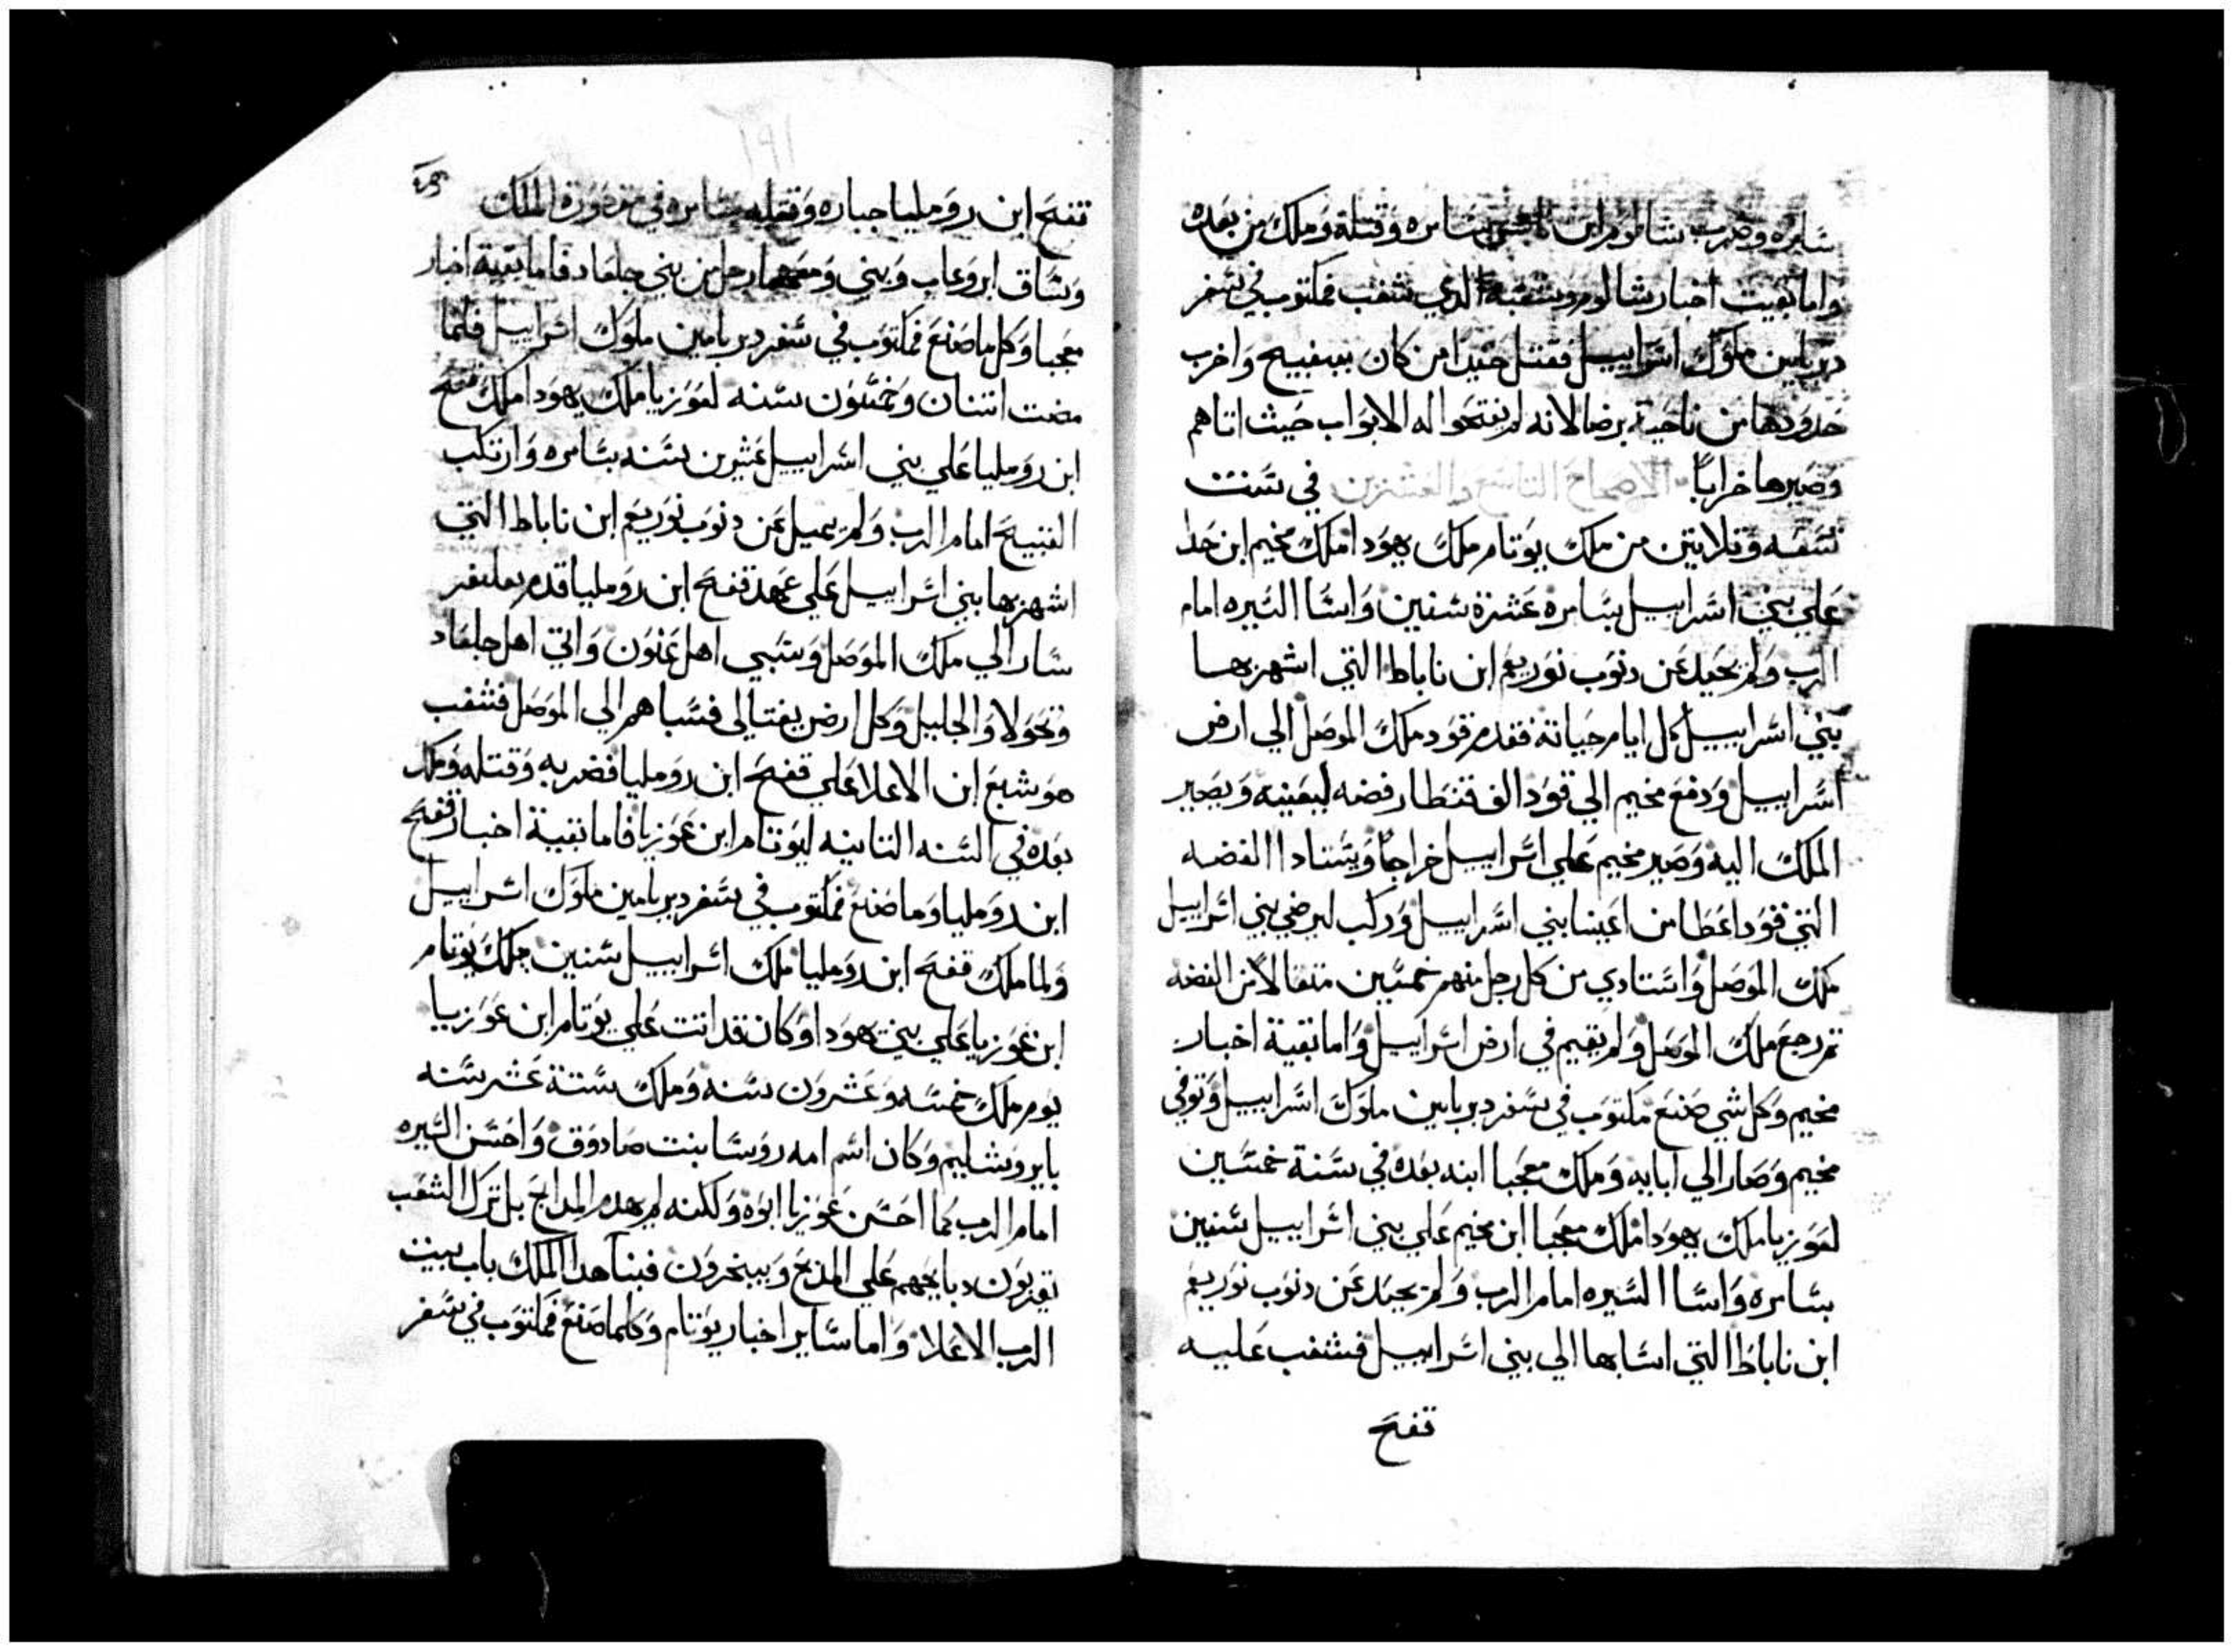 سامره وضرب شالوم ابن نابش بسامره وقتلة وملك من بعده
واما بقيت اخبار شالوم وشغبه الدي شغب فمكتوب في سفر
دبريامين ملوك اسراييل فقتل حنيدا من كان ببفييح واخرب
حدودها من ناحية برصا لانه لم يفتحوا له الابواب حيث اتاهم
وصيرها خراباً الاصحاح التاسع والعشرين في سنت
تسعه وتلاتين من ملك يوتام ملك يهودا ملك مخيم ابن جدا
علي بني اسراييل بسامره عشرة سنين واسا السيره امام
الرب ولم يحيد عن دنوب نوريعم ابن ناباط التي اشهرها
بني اسراييل كل ايام حياتة فقدم قود ملك الموصل الي ارض
اسراييل ودفع مخيم الي قود الف قنطار فضه ليعينه ويصير
الملك اليه وصير مخيم علي اسراييل خراجاً ويستادا الفضه
التي قود اعطا من اغنيا بني اسراييل وركب ليرضي بني اسراييل
ملك الموصل واستادي من كل رجل منهم خمسين متقالا من الفضه
تم رجع ملك الموصل ولم يقيم في ارض اسراييل واما بقية اخبار
مخيم وكل شي صنع مكتوب في سفر دبريامين ملوك اسراييل وتوفي
مخيم وصار الي ابايه وملك معجبا ابنه بعده في سنة خمسين
لعوزيا ملك يهودا ملك معجبا ابن مخيم علي بني اسراييل سنين
بسامره واسا السيره امام الرب ولم يحيد عن دنوب نوريعم
ابن ناباط التي اسا بها الي بني اسراييل فشغب عليه
قفح
١٩١
قفح ابن رومليا جباره وقتله بسامره في مقصورة الملك
وساق ابروعاب وبني ومعهما رجل من بني جلعاد فاما بقية اخبار
معجبا وكل ما صنع فمكتوب في سفر دبريامين ملوك اسراييل فلما
مضت اتنتان وخمسون سنه لعوزيا ملك يهودا ملك قفح
ابن روملياعلي بني اسراييل عشرين سنه بسامره وارتكب
القبيح امام الرب ولم يميل عن دنوب نوريعم ابن ناباط التي
اشهرها بني اسراييل علي عهد قفح ابن روملياقدم بعليفر
سار الي ملك الموصل وسبي اهل عنون واتي اهل جلعاد
وتحولا والجليل وكل ارض يفتالي فسباهم الي الموصل فشغب
هوشبع ابن الاعلا علي قفح ابن روملياف ضربه وقتله وملك
بعده في السنه التانيه ليوتام ابن عوزيا فاما بقية اخبار قفح
ابن رومليا وما صنع فمكتوب في سفر دبريامين ملوك اسراييل
ولما ملك قفح ابن رومليا ملك اسراييل سنين ملك يوتام
ابن عوزيا علي بني يهودا وكان قد اتت علي يوتام ابن عوزيا
يوم ملك خمسه وعشرون سنه وملك ستة عشر سنه
بايروشليم وكان اسم امه روسا بنت صادوق واحسن السيره
امام الرب كما احسن عوزيا ابوه ولكنه لم يهدم المدابح بل ترك الشعب
يقربون دبايحهم علي المدبح ويبخرون فبنا هدا الملك باب بيت
الرب الاعلا واما ساير اخبار يوتام وكلما صنع فمكتوب في سفر